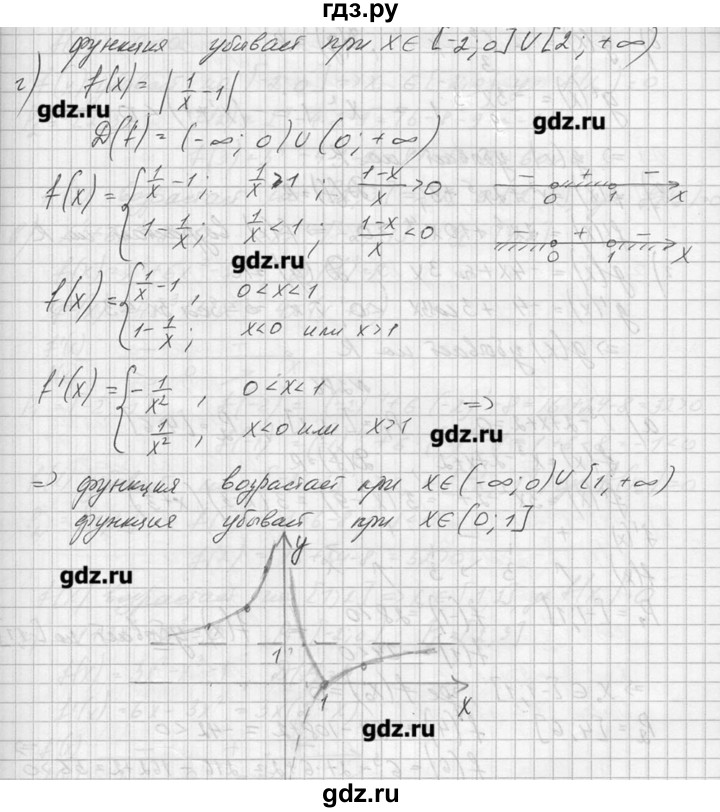 гдз.ру
функция убывает при x∈[-2;0]∪[2;+∞)
г) f(x)=|1/x-1|
gdz.ru gdz.ru
D(f)=(-∞;0)∪(0;+∞)
f(x)={1/x-1; 1/x>1; (1-x)/x>0 - + - 0 1 x
1-1/x; 1/x<1; (1-x)/x<0 - + - 0 1 x
gdz.ru
f(x)={1/x-1, 0<x<1
1-1/x; x<0 или x>1
f'(x)={-1/x², 0<x<1 =>
1/x², x<0 или x>1
gdz.ru
=> функция возрастает при x∈(-∞;0)∪[1;+∞)
функция убывает при x∈(0;1]
y
gdz.ru
1
1 x
gdz.ru
gdz.ru